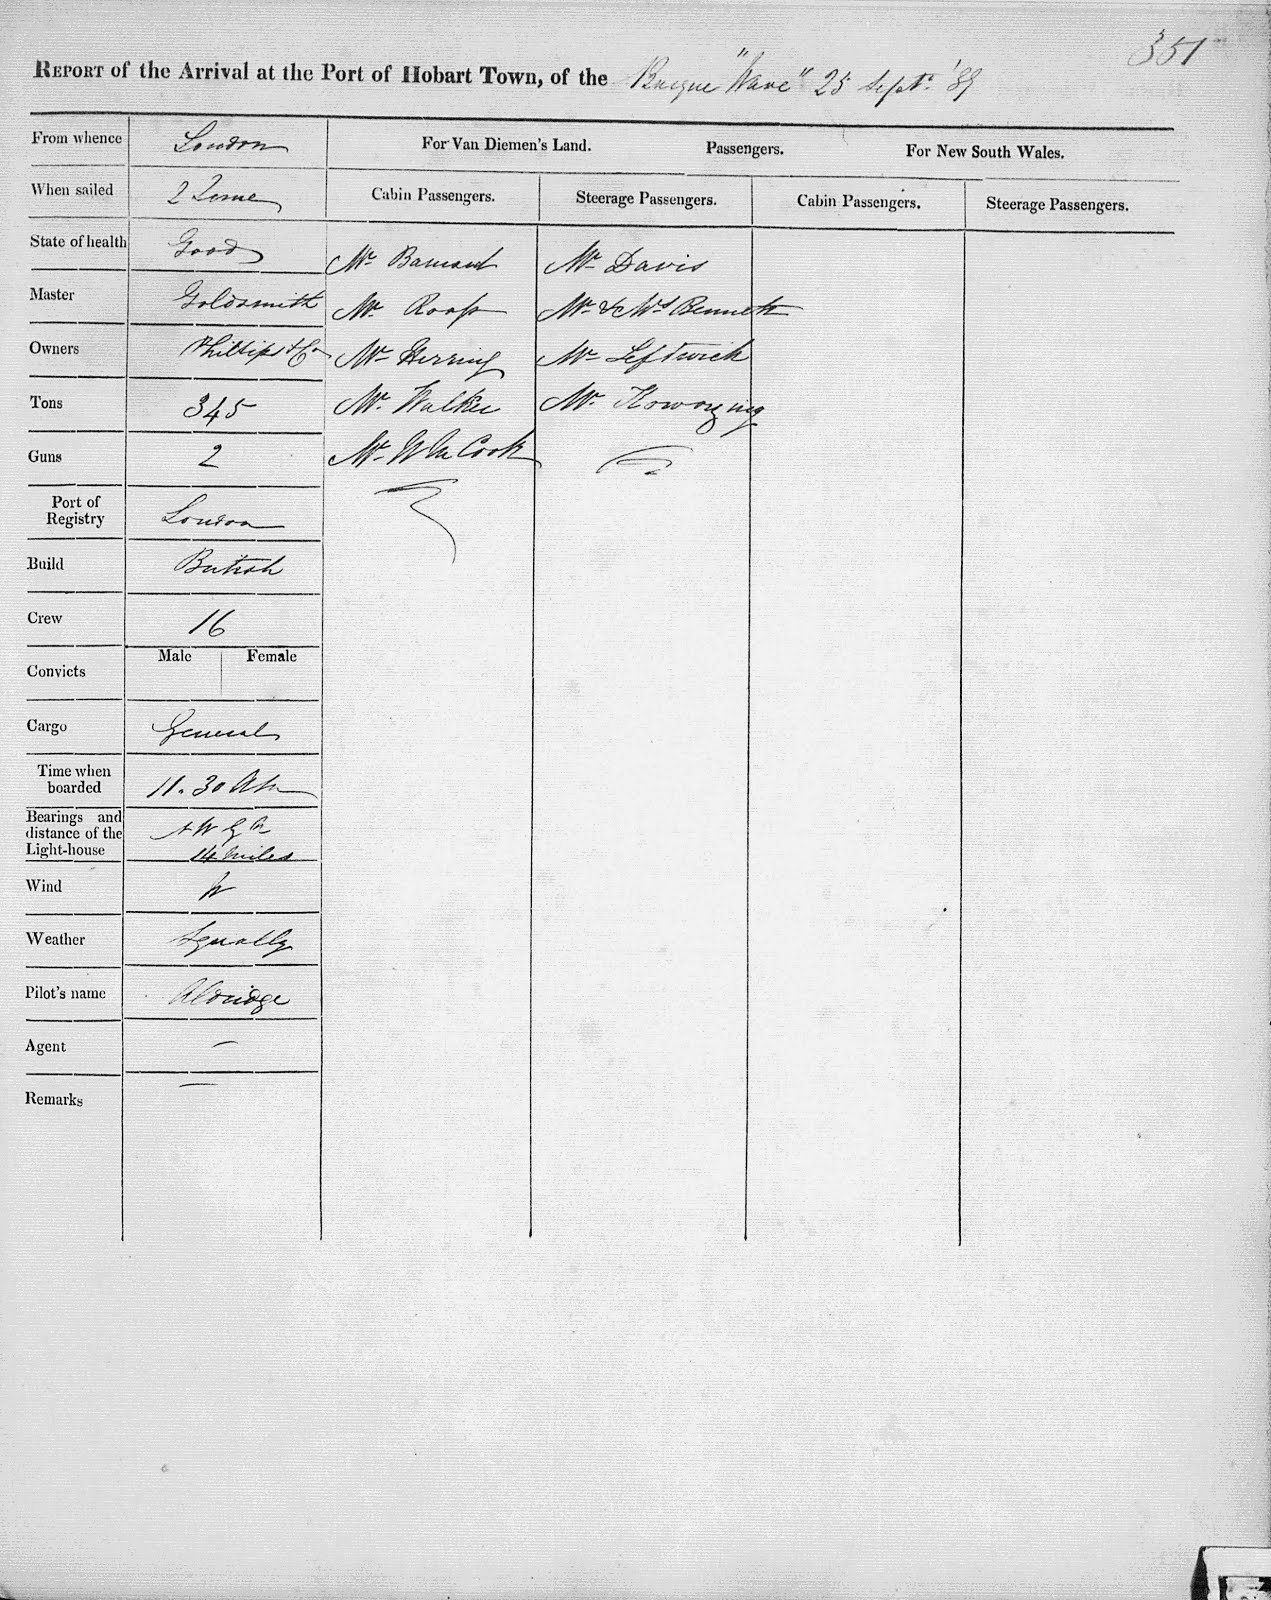 351
REPORT of the Arrival at the Port of Hobart Town, of the Barque "Wave" 25 Septr. '39
From whence London
For Van Diemen's Land. Passengers. For New South Wales.
When sailed 2 June
Cabin Passengers. Steerage Passengers. Cabin Passengers. Steerage Passengers.
State of health Good
Mr Mr Davis
Master Goldsmith
Mr Mr & Mrs Bennett
Owners Phillips & Co
Mr Herring Mr Leftwich
Tons 345
Mr Walker Mr
Guns 2
Mr Wm Cook
Port of
Registry London
Build British
Crew 16
Convicts Male Female
Cargo General
Time when
boarded 11.30 AM
Bearings and
distance of the
Light-house 14 miles
Wind W
Weather Squally
Pilot's name Aldridge
Agent —
Remarks —